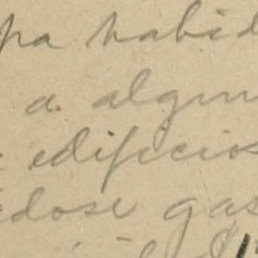 pa habid
a algun
edificios
dose gas